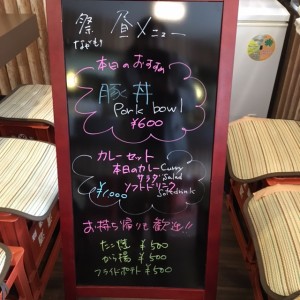 祭 昼メニュー
本日のおすすめ
豚丼
Pork bowl
¥600
カレーセット
本日のカレー Curry
サラダ Salad
ソフトドリンク Softdrink
¥1,000
お持ち帰りも歓迎!!
たこ焼 ¥500
から揚 ¥500
フライドポテト ¥500